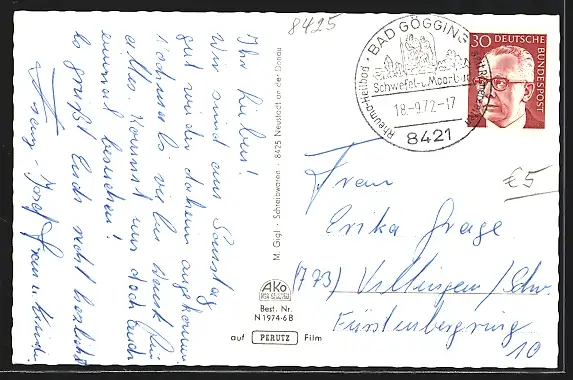 8425
BAD GÖGGING
Schwefel- u. Moorbad
Rheuma-Heilbad
18.-9.72-17
8421
30 DEUTSCHE
BUNDESPOST
€5
Ihr Lieben!
Wir sind am Samstag
gut wieder daheim angekommen
Nochmals vielen Dank für
alles. Kommt uns doch auch
einmal besuchen!
So grüßt Euch recht herzlichst
Franz-Josef Frau u. Kinder
M. Gigl · Schreibwaren · 8425 Neustadt an der Donau
AKO
Best. Nr.
N 1974-6 B
auf PERUTZ Film
Frau
Erika Grage
(773) Villingen/Schw.
Fürstenbergring
10